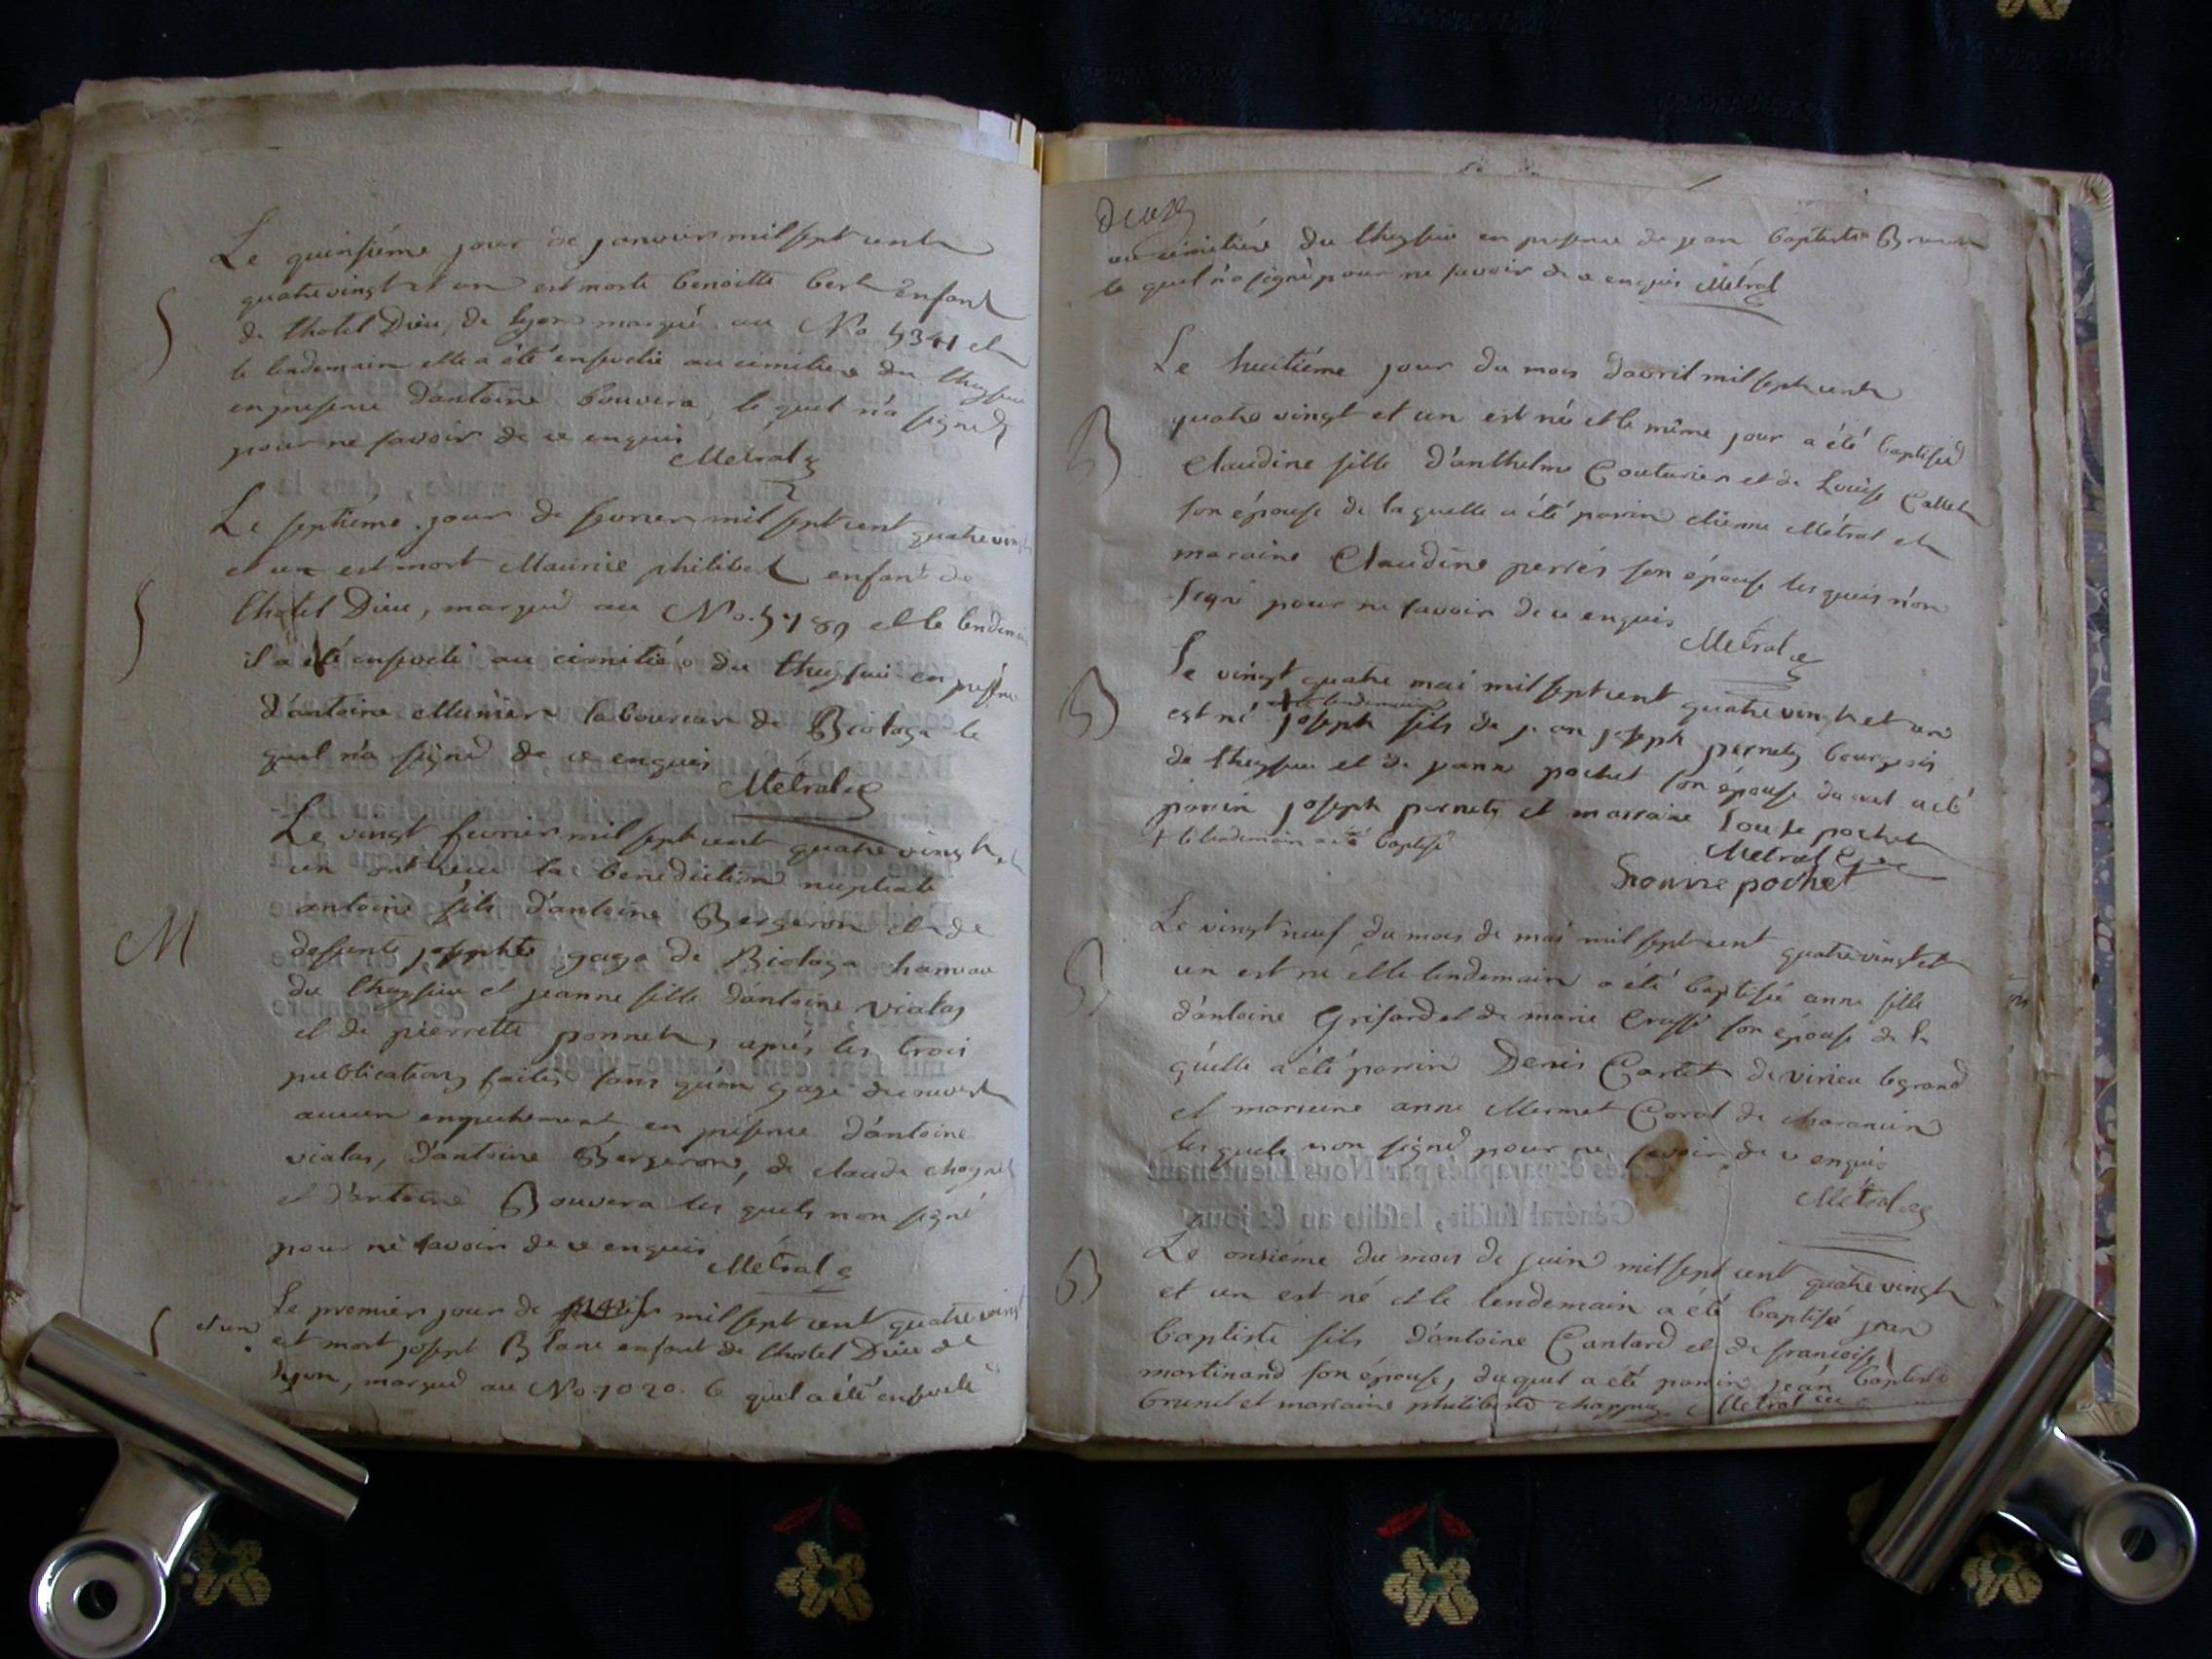 Le quinsiéme jour de janvier mil sept cent
quatrevingt et un est morte benoitte bert enfant
de lhotel Dieu, de lyon marqué au No 5341 et
le lendemain elle a été ensevelie au cimitiere du theysieu
en presence d'antoine bouvera, le quel n'a signé
pour ne savoir de ce enquis
Metral
Le septieme jour de fevrier mil sept cent quatre vingt
et un est mort Maurice philibert enfant de
lhotel Dieu, marqué au No. 5789 et le lendemain
il a été enseveli au cimitiére du theysieu en presence
d'antoine Munier laboureur de Biolaga le
quel n'a signé de ce enquis
Métral
Le vingt fevrier mil sept cent quatre vingt et
un ont reçu la benediction nuptiale
antoine fils d'antoine Bergeron et de
M
deffunte josephte gaga de Biolaga hameau
du theysieu et jeanne fille d'antoine vialas
et de pierrette ponnet, aprés les trois
publications faites sans qu'on y aye decouvert
aucun empechement en presence d'antoine
vialas, d'antoine Bergeron, de claude
et d'antoine Bouvera les quels n'on signé
pour ne savoir de ce enquis
Métral
Le premier jour de mil sept cent quatre vingt
et un
est mort joseph Blanc enfant de lhotel Dieu de
lyon, marqué au No. 7020. le quel a été enseveli
Deux
au cimitiére du theysieu en presence de jean baptiste
le quel n'a signé pour ne savoir de ce enquis Métral
Le huitiéme jour du mois d'avril mil sept cent
B
quatre vingt et un est né et le même jour a été baptisée
Claudine fille d'anthelme Couturier et de Louise Callet
son épouse de laquelle a été parin etienne Métral et
maraine Claudine perret son épouse les quels n'on
signé pour ne savoir de ce enquis
Métral
Le vingt quatre mai mil sept cent quatre vingt et un
B
est né joseph fils de jean joseph pernety bourgeois
de theysieu et de jeanne pochet son épouse duquel a été
parin joseph pernety et marraine Louise pochet
+ le lendemain a été baptisé
Métral
Louise pochet
Le vingt neuf du mois de mai mil sept cent quatre vingt et
B
un est né et le lendemain a été baptisée anne fille
d'antoine Grisard et de marie son épouse de la
quelle a été parin Denis Cartet de virieu legrand
et maraine anne Mermet Coral de charancin
les quels n'on signé pour ne savoir de ce enquis
Métral
Le onsiéme du mois de juin mil sept cent quatre vingt
B
et un est né et le lendemain a été baptisé jean
baptiste fils d'antoine Cantard et de françoise
martinand son épouse, duquel a été parrin jean baptiste
brunet et marraine philiberte chappuy Métral